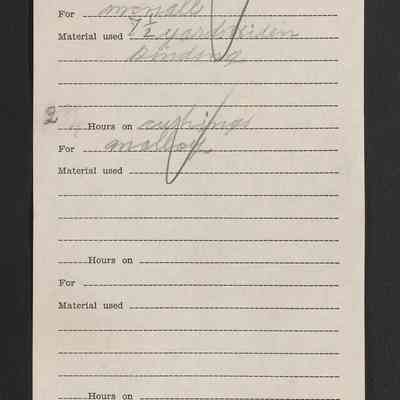 For
Material used 7 1/2 yards
binding
2 Hours on cushings
For
Material used
Hours on
For
Material used
Hours on